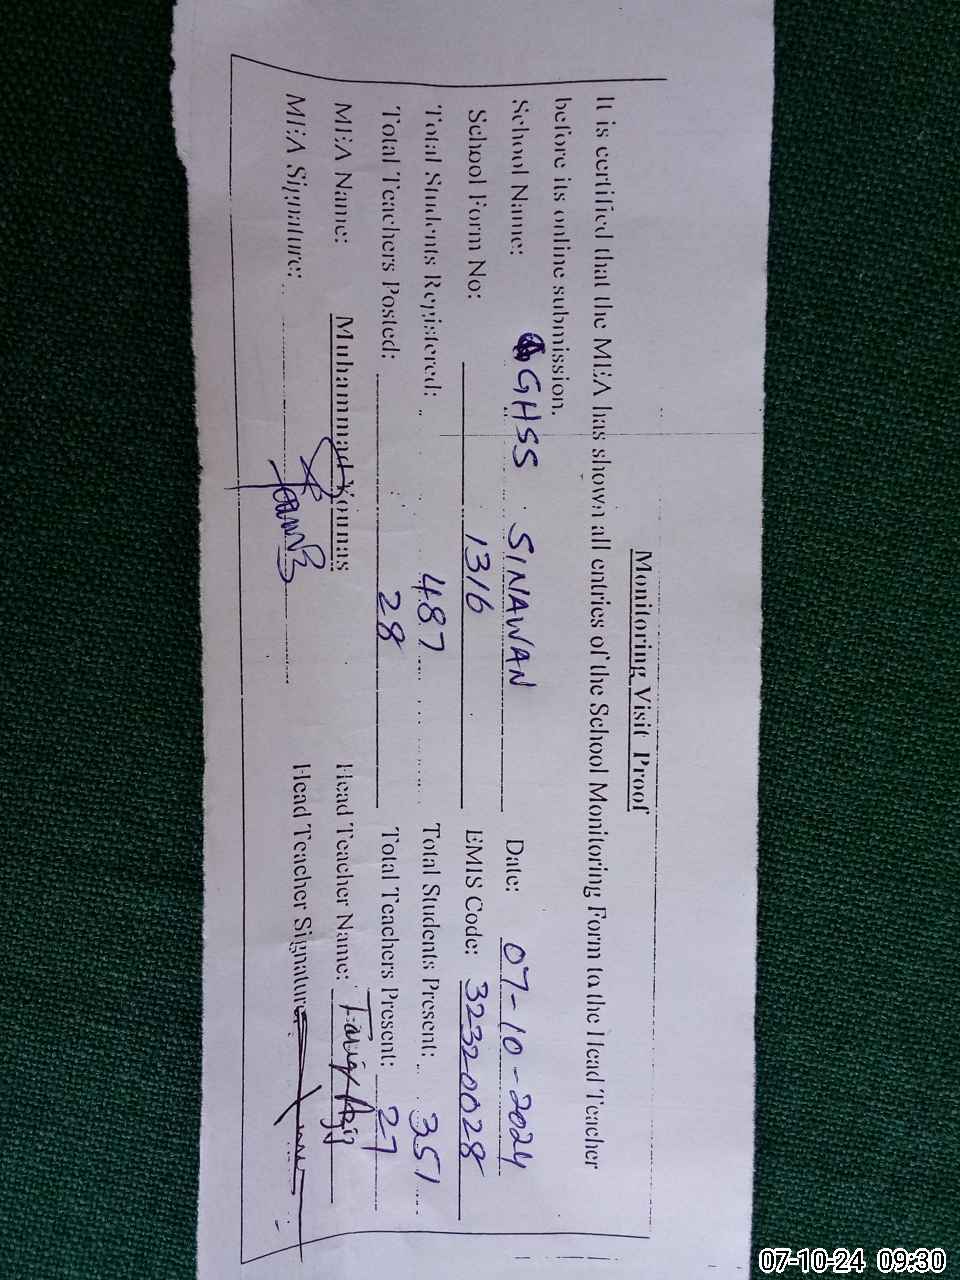 Monitoring Visit Proof
It is certified that the MEA has shown all entries of the School Monitoring Form to the Head Teacher
before its online submission.
School Name: GHSS SINAWAN Date: 07-10-2024
School Form No: 1316 EMIS Code: 32320028
Total Students Registered: 487 Total Students Present: 351
Total Teachers Posted: 28 Total Teachers Present: 27
MEA Name: Muhammad Younas Head Teacher Name:
MEA Signature: Head Teacher Signature
07-10-24 09:30